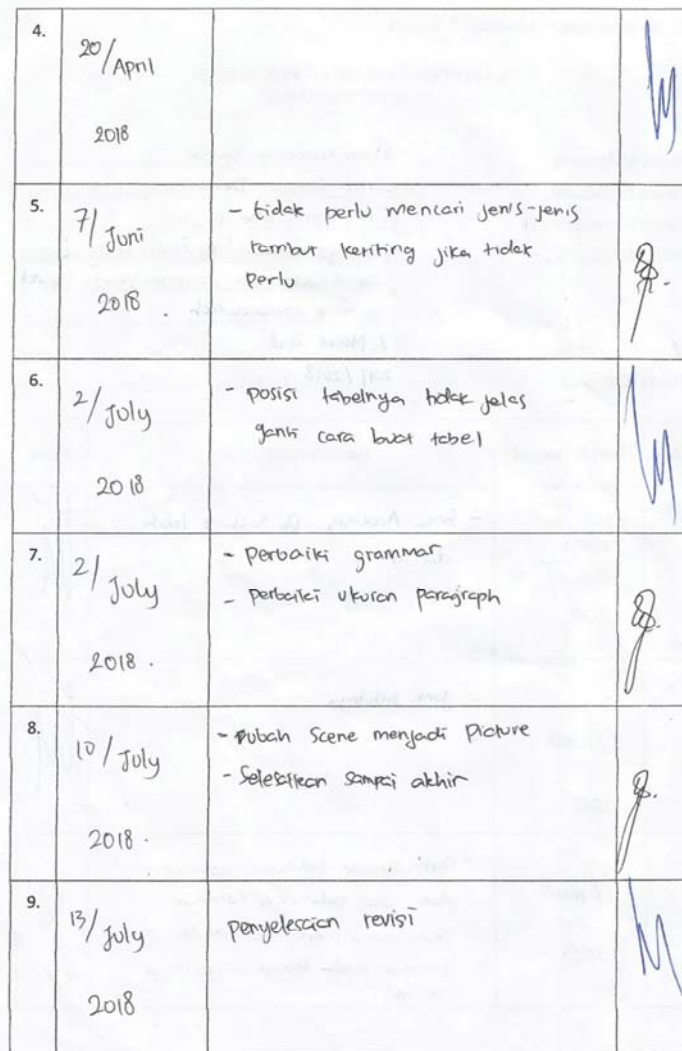 4.
20/April
2018
5.
7/Juni
2018.
- tidak perlu mencari jenis-jenis
rambut keriting jika tidak
perlu
6.
2/July
2018
- posisi tabelnya tidak jelas
ganti cara buat tabel
7.
2/July
2018.
- Perbaiki grammar
- Perbaiki ukuran paragraph
8.
10/July
2018.
- Rubah Scene menjadi Picture
- Selesaikan sampai akhir
9.
13/July
2018
Penyelesaian revisi